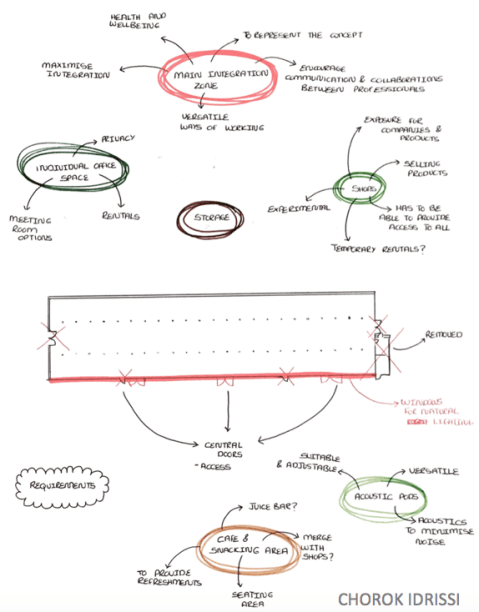 HEALTH AND
WELLBEING
TO REPRESENT THE CONCEPT
MAXIMISE
INTEGRATION
MAIN INTEGRATION
ZONE
ENCOURAGE
COMMUNICATION & COLLABORATIONS
BETWEEN PROFESSIONALS
VERSATILE
WAYS OF WORKING
PRIVACY
INDIVIDUAL OFFICE
SPACE
MEETING
ROOM
OPTIONS
RENTALS
STORAGE
EXPOSURE FOR
COMPANIES &
PRODUCTS
SELLING
PRODUCTS
SHOPS
EXPERIMENTAL
HAS TO BE
ABLE TO PROVIDE
ACCESS TO ALL
TEMPORARY RENTALS?
REMOVED
WINDOWS
FOR NATURAL
LIGHTING
CENTRAL
DOORS
-ACCESS
REQUIREMENTS
SUITABLE
& ADJUSTABLE
VERSATILE
ACOUSTIC PODS
ACOUSTICS
TO MINIMISE
NOISE
JUICE BAR?
CAFE &
SNACKING AREA
MERGE
WITH
SHOPS?
TO PROVIDE
REFRESHMENTS
SEATING
AREA
CHOROK IDRISSI